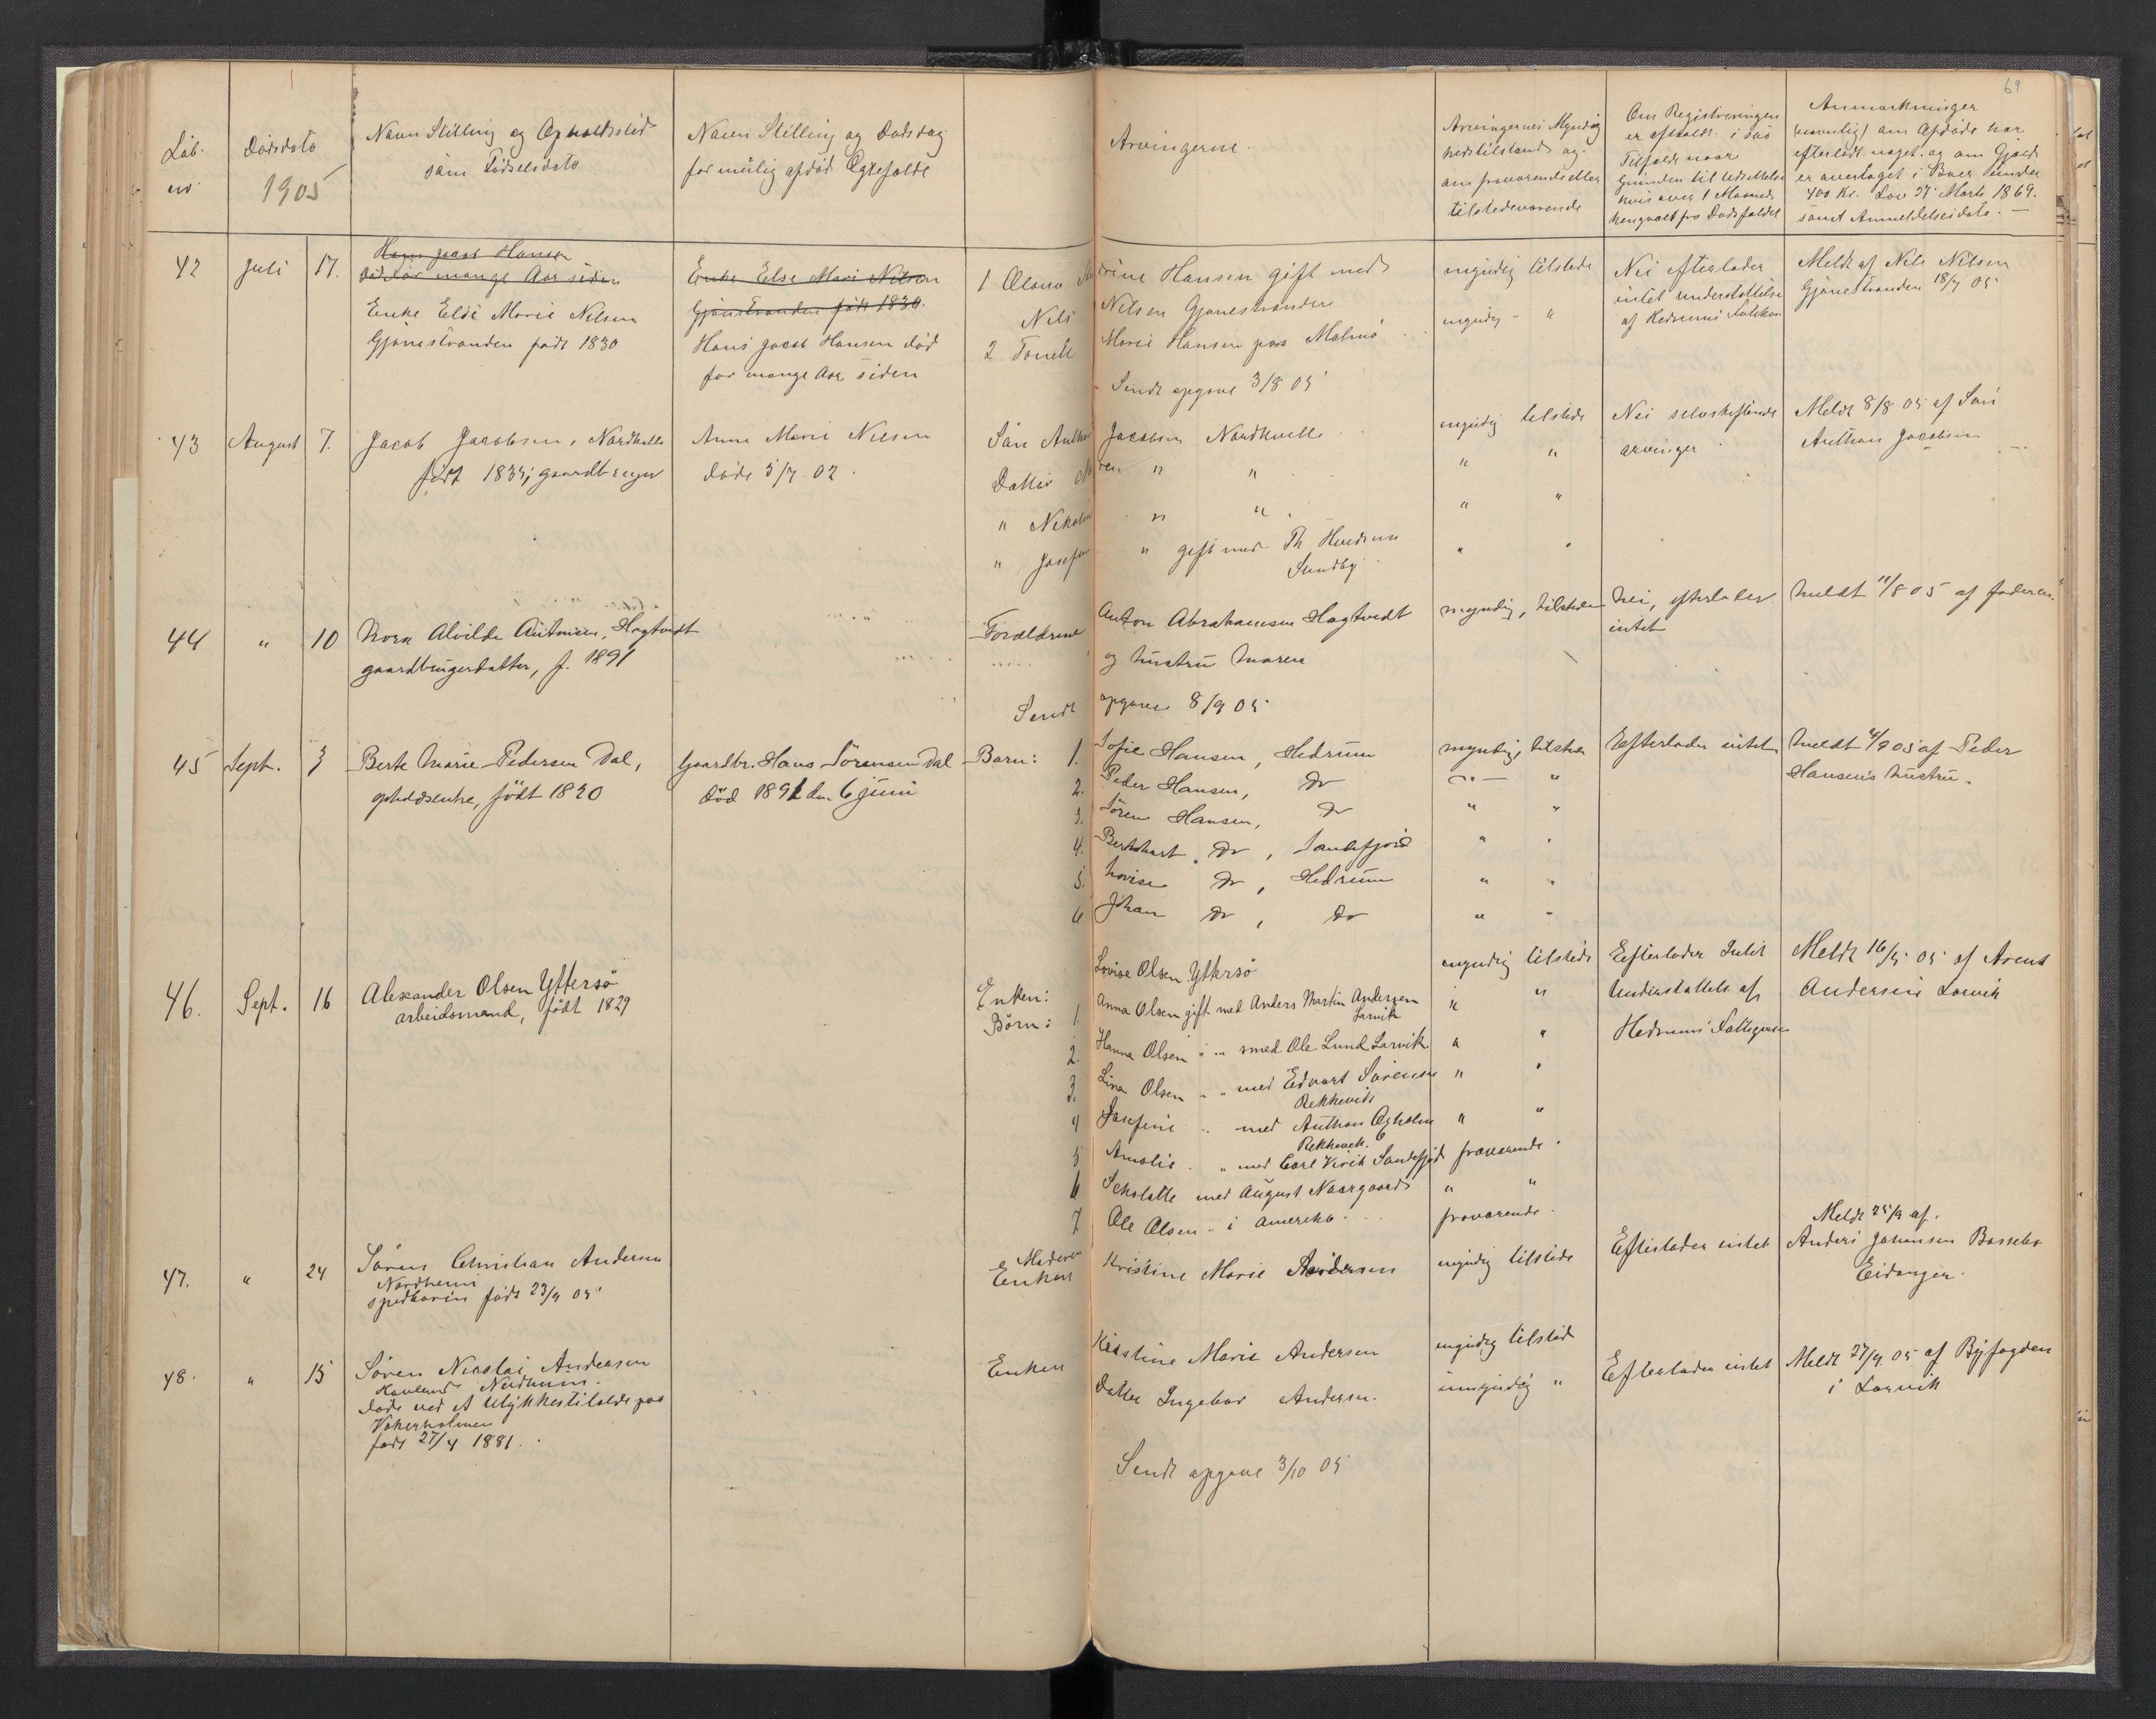 69
Löb. nr.
Dødsdato
1905
Navn Stilling og Opholdssted
sam Fødselsdato
Navn Stilling og Dødsdag
for mulig afdød Egtefælle
Arvingerne.
Arvingernes Myndig
hedstilstand og
om fraværende eller
tilstedeværende
Om Registreringen
er afholdt i saa
Tilfælde naar
Grunden til Udsættelse
hvis over 1 Maaned
hengaaet fra Dødsfaldet
Anmærkninger
(navnlig) om Afdøde har
efterladt noget og om Gjæld
er overtaget i Boer under
400 Kr. Lov 27 Marts 1869.
samt Anmeldelsesdato. —
42 Juli 17.
Hans Jacob Hansen
død for mange Aar siden
Enke Else Marie Nilsen
Gjønestranden født 1830
Enke Else Mari Nilsen
Gjønestranden født 1830.
Hans Jacob Hansen død
for mange Aar siden
1 Olava Marine Hansen gift med
Nils Nilsen Gjønestranden
2 Tonette Marie Hansen paa Malmö
Sendt opgave 3/8 05
myndig tilstede
myndig " "
Nei efterlader
intet understøttelse
af Hedrums Fatikas
Meldt af Nils Nilsen
Gjønestranden 18/7 05
43 August 7.
Jacob Jacobsen, Nordkvelle
født 1834, gaardbruger
Anne Marie Nilsen
døde 5/7 02.
Søn Anthon Jacobsen Nordkvelle
Datter Maren " "
" Nikoline " "
" Josefine " gift med Th Hendrum
Sundby
myndig tilstede
" "
" "
" "
Nei selvskiftende
arvinger
Meldt 8/8 05 af Søn
Anthon Jacobsen
44 " 10
Nora Alvilde Antonsen, Hagtvedt
gaardbrugerdatter, f. 1891
Forældrene Anton Abrahamsen Hagtvedt
og hustru Maren
Sendt opgave 8/9 05
myndig, tilstede
Nei, efterlader
intet
Meldt 11/8 05 af faderen.
45 Sept. 3
Berte Marie Pedersen Dal,
opholdsenke, født 1820
Gaardbr. Hans Sörensen Dal
död 1891 den 6 juni
Barn: 1. Sofie Hansen, Hedrum
2. Peder Hansen, Do
3. Sören Hansen, Do
4. Bernhart Do, Sandefjord
5. Lovise Do, Hedrum
6 Johan Do, Do
myndig, tilstede
— " — "
" "
" "
" "
" "
Efterlader intet
Meldt 4/9 05 af Peder
Hansens hustru.
46. Sept. 16
Alexander Olsen Yttersö
arbeidsmand, født 1829
Enken: Lovise Olsen Yttersö
Börn: 1 Anna Olsen gift med Anders Martin Andersen
Larvik
2. Hanna Olsen " " smed Ole Lund Larvik
3. Lina Olsen " " med Edvart Sörensen
Rekkevik
4 Josefine " med Anthon Ogholm
Rekkevik.
5 Amalie " med Carl Virik Sandefjord
6 Scholatte med August Naargaard
7. Ole Olsen i Amerika.
myndig tilstede
" "
" "
" "
" "
fraværende
" "
fraværende
Efterlader Intet
Understøttelse af
Hedrums Fattigvæsen
Meldt 16/9 05 af Arent
Andersen Larvik
47. " 24
Sören Christian Andersen
Nordheim
spedbarn født 23/9 05
Moderen
Enken Kristine Marie Andersen
myndig tilstede
Efterlader intet
Meldt 25/9 af.
Anders Johansen Bassebo
Eidanger.
48. " 15
Søren Nicolai Andersen
Nordheim.
døde ved et Ulykkestilfælde paa
Vakerholmen
født 27/4 1881.
Enken Kristine Marie Andersen
Datter Ingebor Andersen.
Sendt opgave 3/10 05
myndig tilsted
umyndig "
Efterlader intet
Meldt 27/9 05 af Byfogden
i Larvik